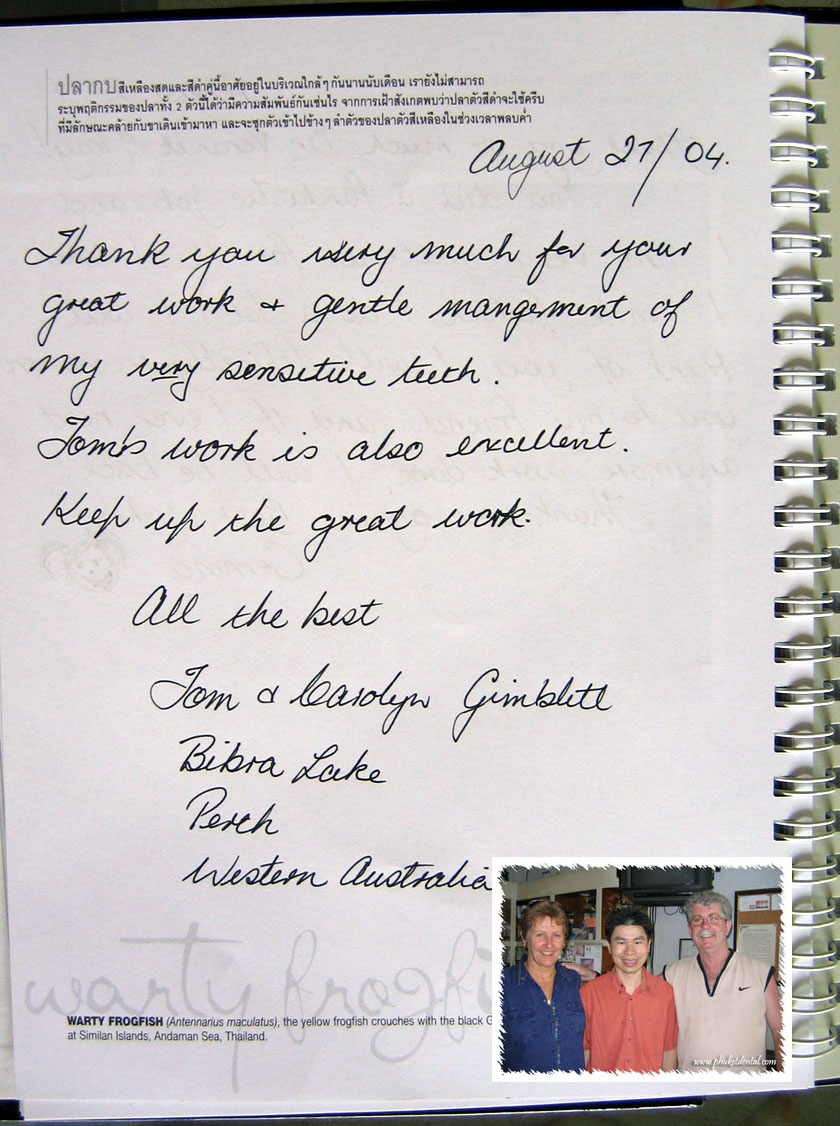 ปลากบสีเหลืองสดและสีดำคู่นี้อาศัยอยู่ในบริเวณใกล้ๆ กันนานนับเดือน เรายังไม่สามารถ
ระบุพฤติกรรมของปลาทั้ง 2 ตัวนี้ได้ว่ามีความสัมพันธ์กันเช่นไร จากการเฝ้าสังเกตพบว่าปลาตัวสีดำจะใช้ครีบ
ที่มีลักษณะคล้ายกับขาเดินเข้ามาหา และจะซุกตัวเข้าไปข้างๆ ลำตัวของปลาตัวสีเหลืองในช่วงเวลาพลบค่ำ
August 27/04.
Thank you very much for your
great work & gentle mangement of
my very sensitive teeth.
Tom's work is also excellent.
Keep up the great work.
All the best
Tom & Carolyn Gimblett
Bibra Lake
Perth
Western Australia
warty frogfi
WARTY FROGFISH (Antennarius maculatus), the yellow frogfish crouches with the black G
at Similan Islands, Andaman Sea, Thailand.
www.phuketdental.com